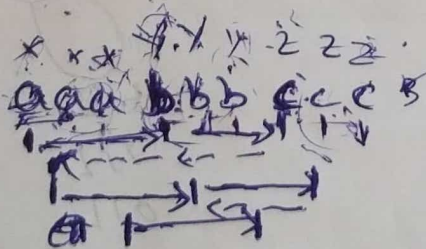 x x x y y y z z z
a a a b b b c c c B